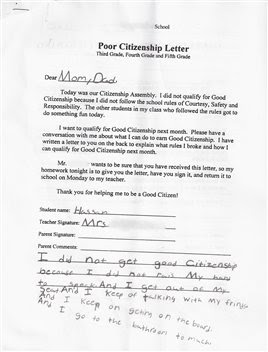 School
Poor Citizenship Letter
Third Grade, Fourth Grade and Fifth Grade
Dear Mom, Dad,
Today was our Citizenship Assembly. I did not qualify for Good
Citizenship because I did not follow the school rules of Courtesy, Safety and
Responsibility. The other students in my class who followed the rules got to
do something fun today.
I want to qualify for Good Citizenship next month. Please have a
conversation with me about what I can do to earn Good Citizenship. I have
written a letter to you on the back to explain what rules I broke and how I
can qualify for Good Citizenship next month.
Mr. wants to be sure that you have received this letter, so my
homework tonight is to give you the letter, have you sign it, and return it to
school on Monday to my teacher.
Thank you for helping me to be a Good Citizen!
Student name: Hassan
Teacher Signature: Mrs
Parent Signature:
Parent Comments:
I did not get good Citizenship
because I did not rais My hand
to speak And I get out of My
Seat And I keep of talking with my frings
And I keep on geting on the board.
And I go to the bathroom to much.